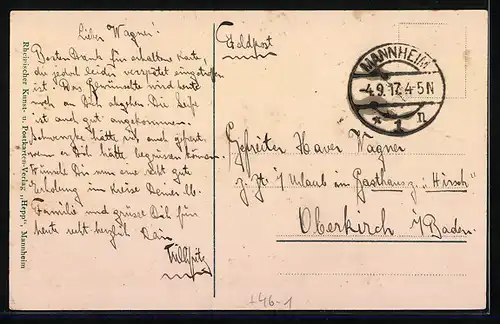 Lieber Wagner!
Besten Dank für erhaltene Karte,
die jedoch leider verspätet eingetroffen
ist. Das Gewünschte wird heute
noch an Dich abgehen. Die Seife
ist auch gut angekommen.
hätte sich auch gefreut,
wenn er Dich hätte begrüssen können.
Wünsche Dir nun eine recht gute
Erholung im Kreise Deiner lb.
Familie und grüsse Dich für
heute recht herzlich Dein
Feldpost
MANNHEIM
-4.9.17.4-5N
* 1 n
Gefreiter Xaver Wagner
z. Zt. i/ Urlaub im Gasthaus z. "Hirsch"
Oberkirch i/Baden.
Rheinischer Kunst- u. Postkarten-Verlag „Hepp“, Mannheim
+46-1